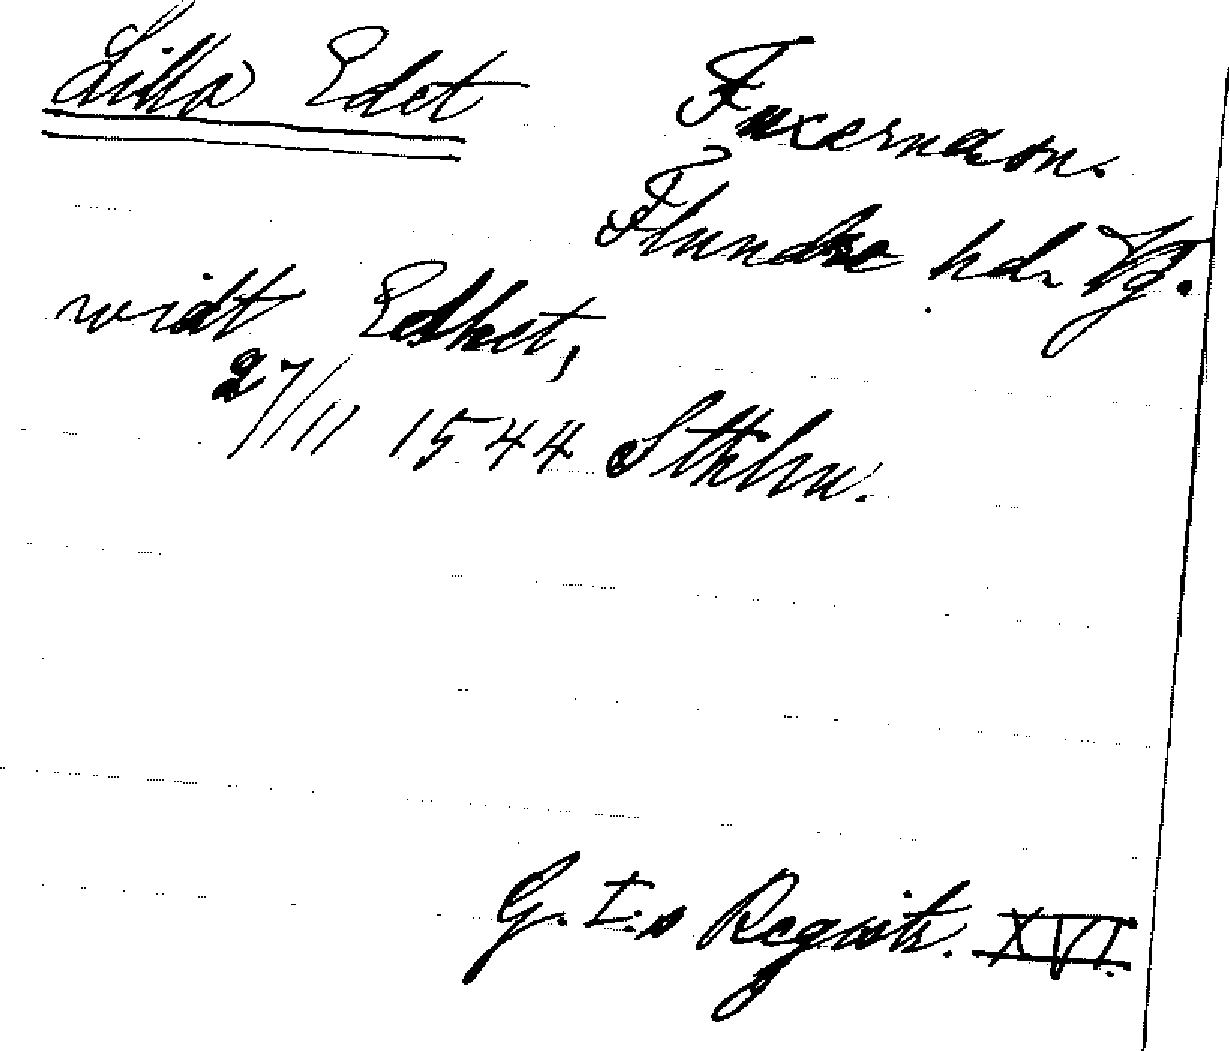 Lilla Edet
Fuxerna sn.
Flundre hd. Vg.
widt Edhet,
27/11 1544 Sthlm.
G. I:s Registr. XVI.